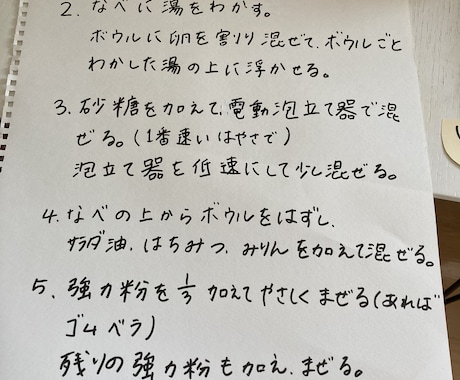 2. なべに湯をわかす。
ボウルに卵を割りり混ぜて、ボウルごと
わかした湯の上に浮かせる。
3. 砂糖を加えて、電動泡立て器で混
ぜる。(1番速いはやさで)
泡立て器を低速にして少し混ぜる。
4. なべの上からボウルをはずし、
サラダ油、はちみつ、みりんを加えて混ぜる。
5. 強力粉を1/3加えてやさしくまぜる(あれば
ゴムベラ)
残りの強力粉も加え、まぜる。